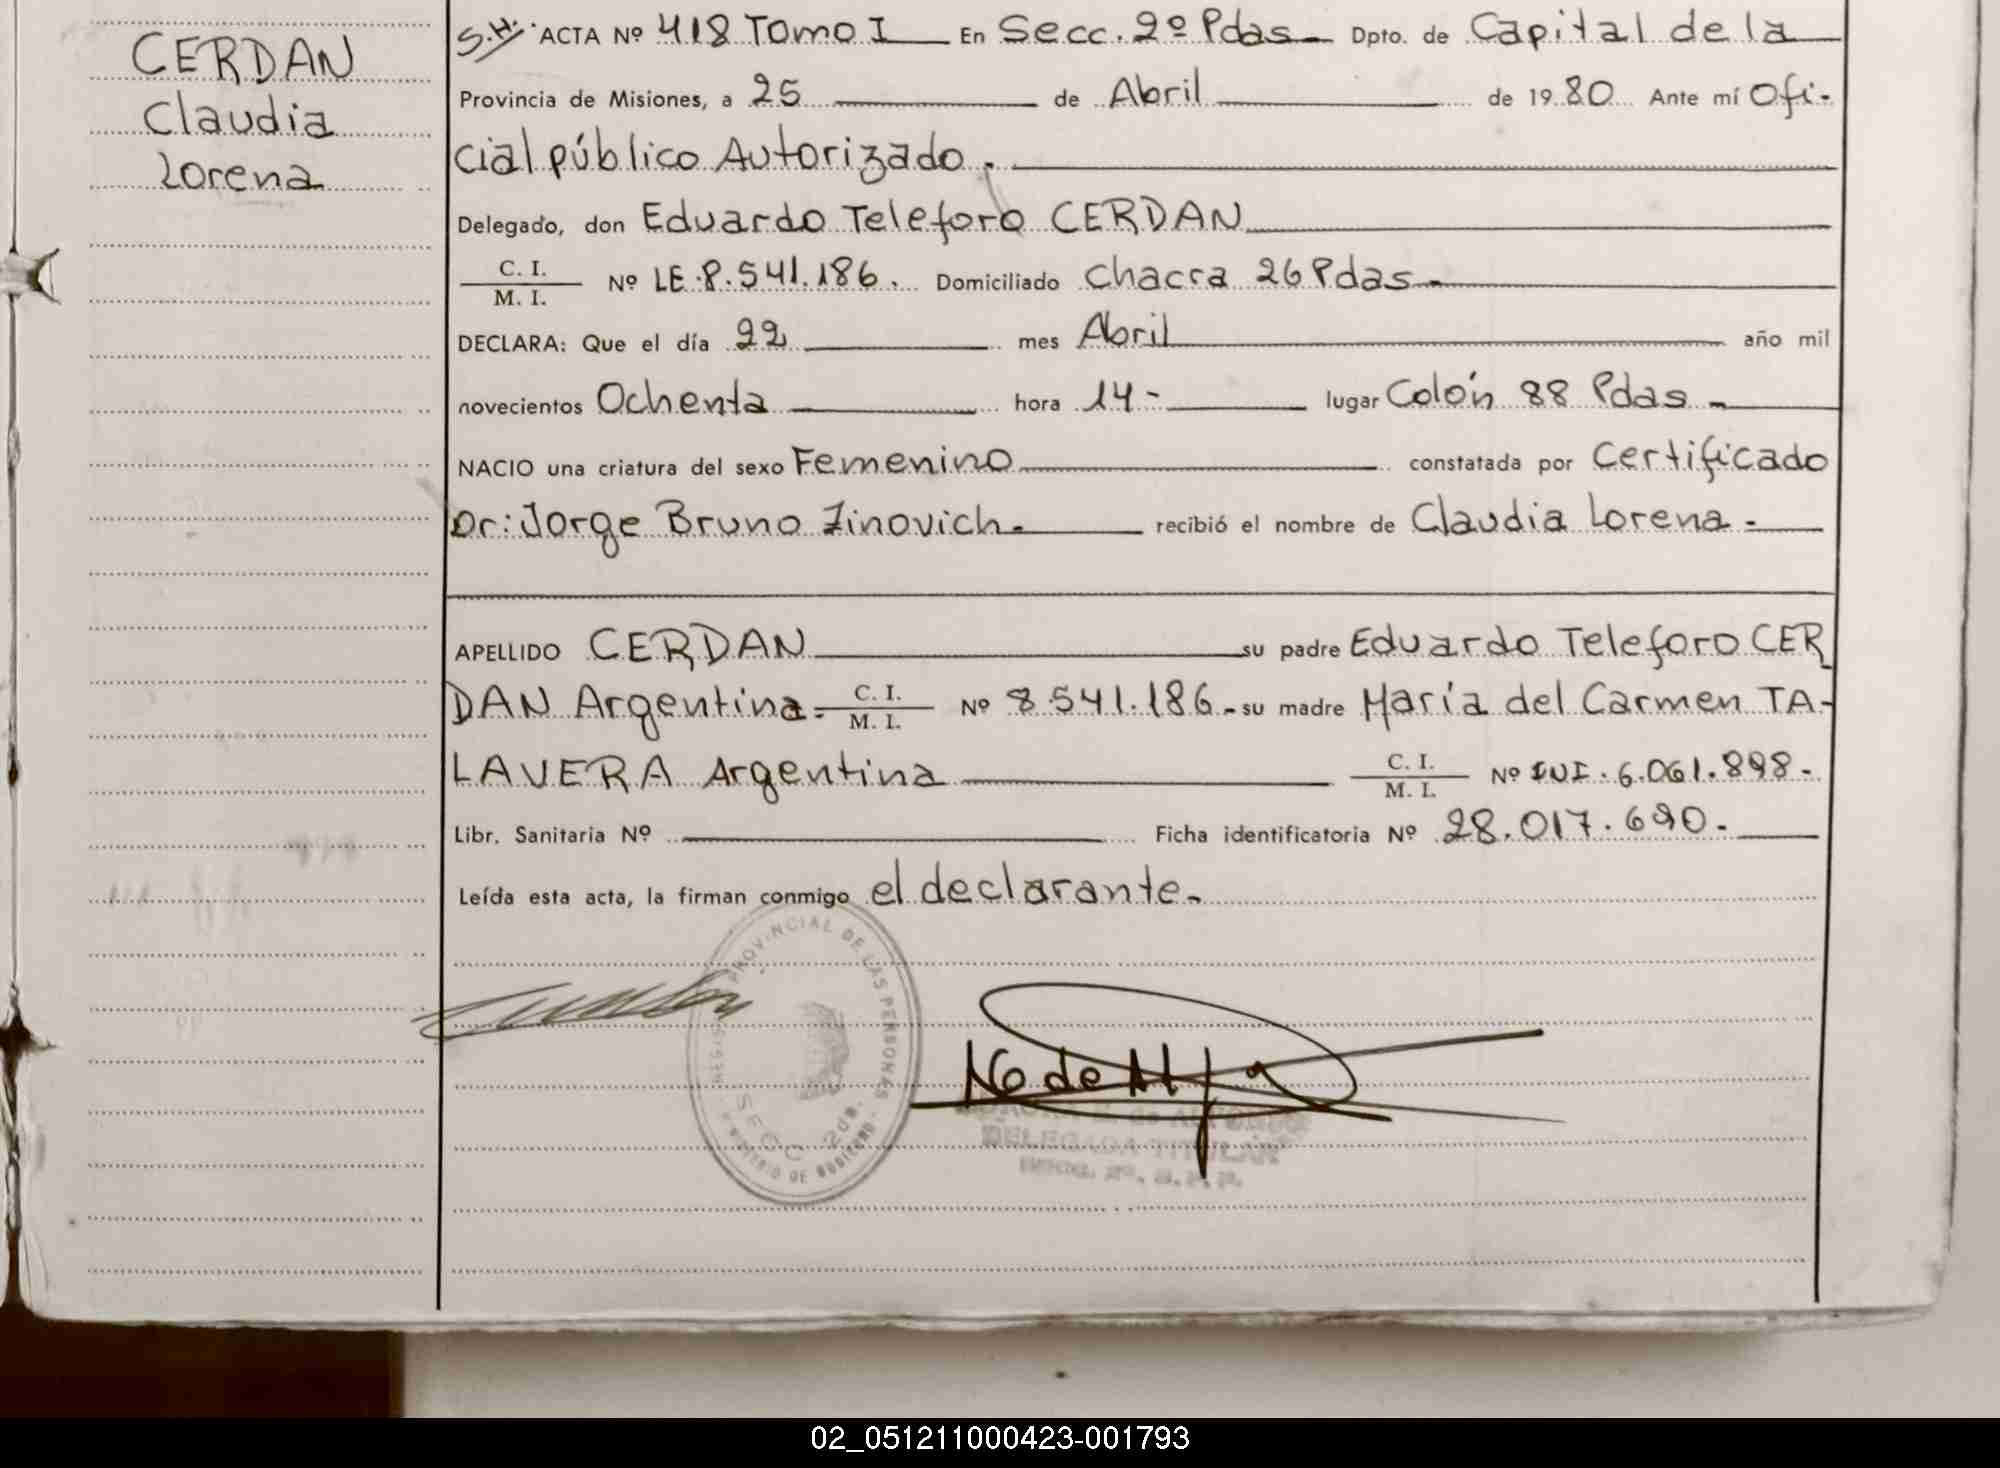 CERDAN
Claudia
Lorena
S.H. ACTA Nº 418 Tomo I En Secc. 2º Pdas Dpto. de Capital de la
Provincia de Misiones, a 25 de Abril de 1980 Ante mí Ofi-
cial público Autorizado.
Delegado, don Eduardo Teleforo CERDAN
C. I.
M. I. Nº LE 8.541.186. Domiciliado Chacra 26 Pdas
DECLARA: Que el día 22 mes Abril año mil
novecientos Ochenta hora 14- lugar Colón 88 Pdas
NACIO una criatura del sexo Femenino constatada por Certificado
Dr: Jorge Bruno Zinovich. recibió el nombre de Claudia Lorena
APELLIDO CERDAN su padre Eduardo Teleforo CER
DAN Argentina. C. I. Nº 8.541.186. su madre María del Carmen TA-
M. I.
LAVERA Argentina C. I. Nº 6.061.898.
M. I.
Libr. Sanitaria Nº Ficha identificatoria Nº 28.017.690.
Leída esta acta, la firman conmigo el declarante.
PROVINCIAL DE LAS PERSONAS
SECC 2da.
DELEGADA TITULAR
02_051211000423-001793